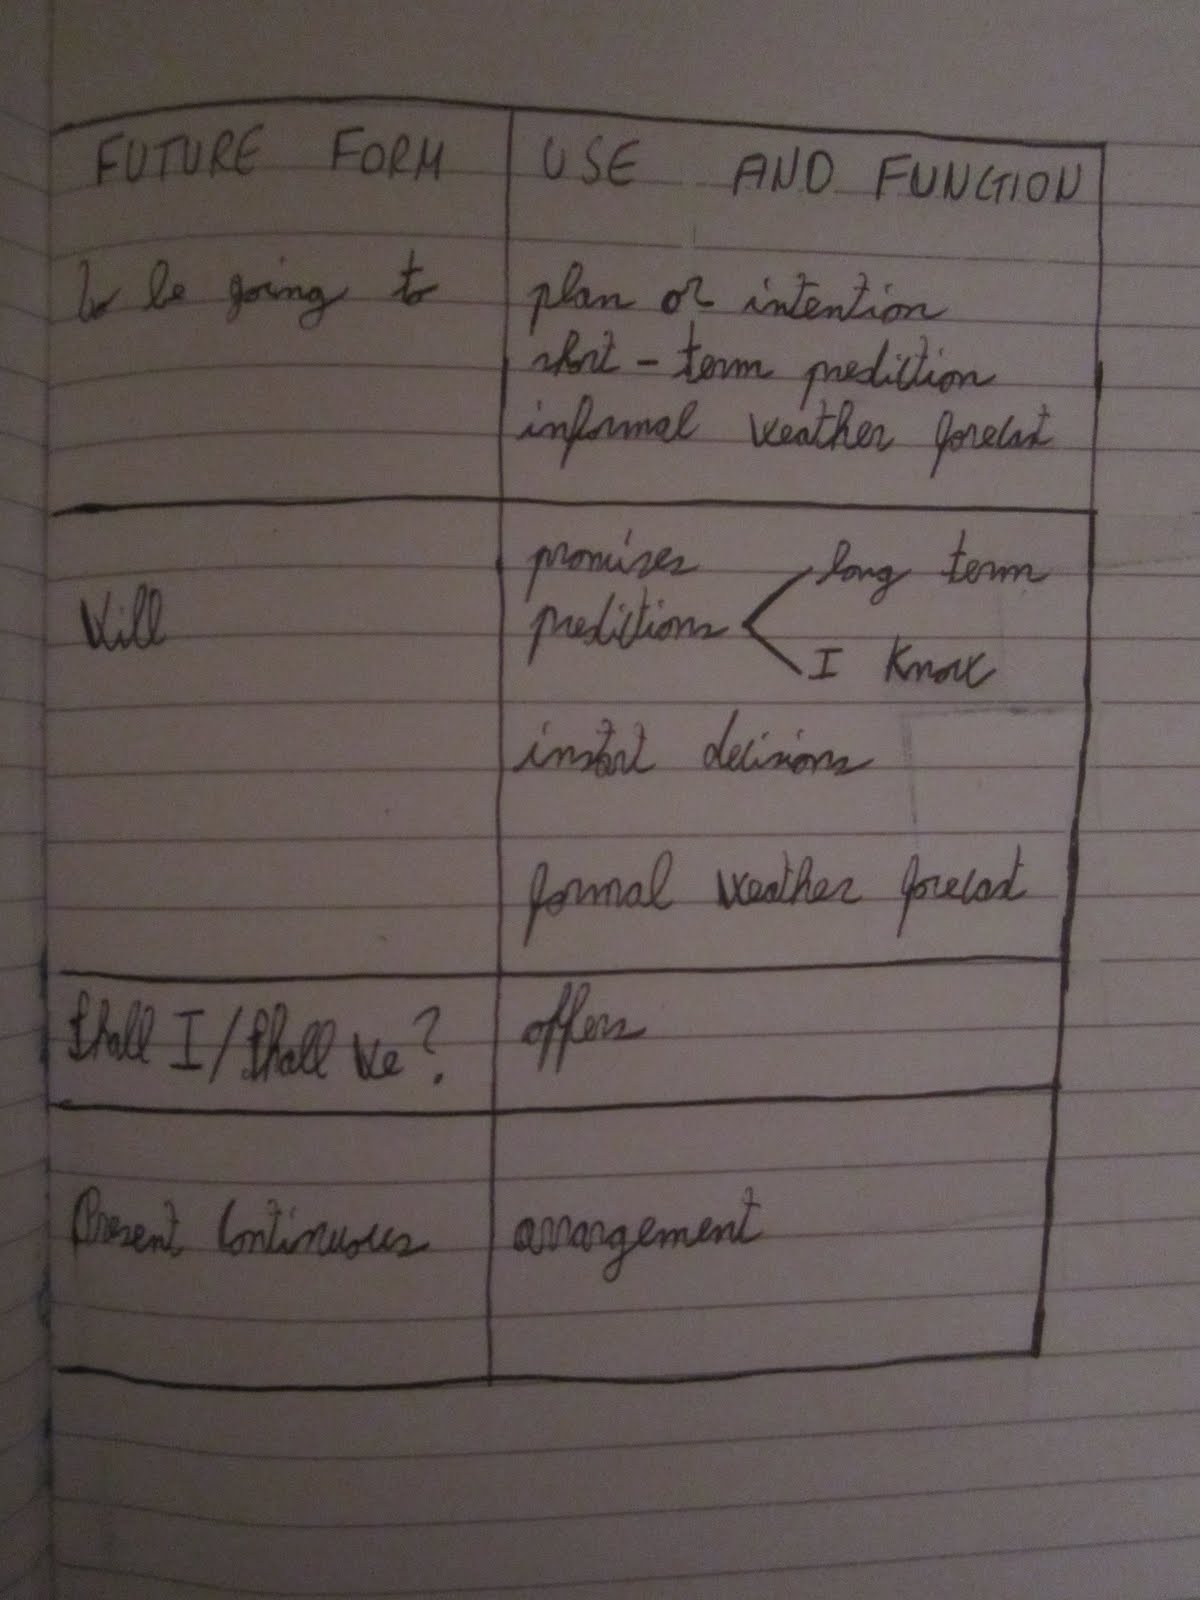 FUTURE FORM USE AND FUNCTION
to be going to plan or intention
short-term prediction
informal weather forecast
promises long term
Will predictions
I know
instant decisions
formal weather forecast
Shall I/Shall we? offers
Present Continuous arrangement